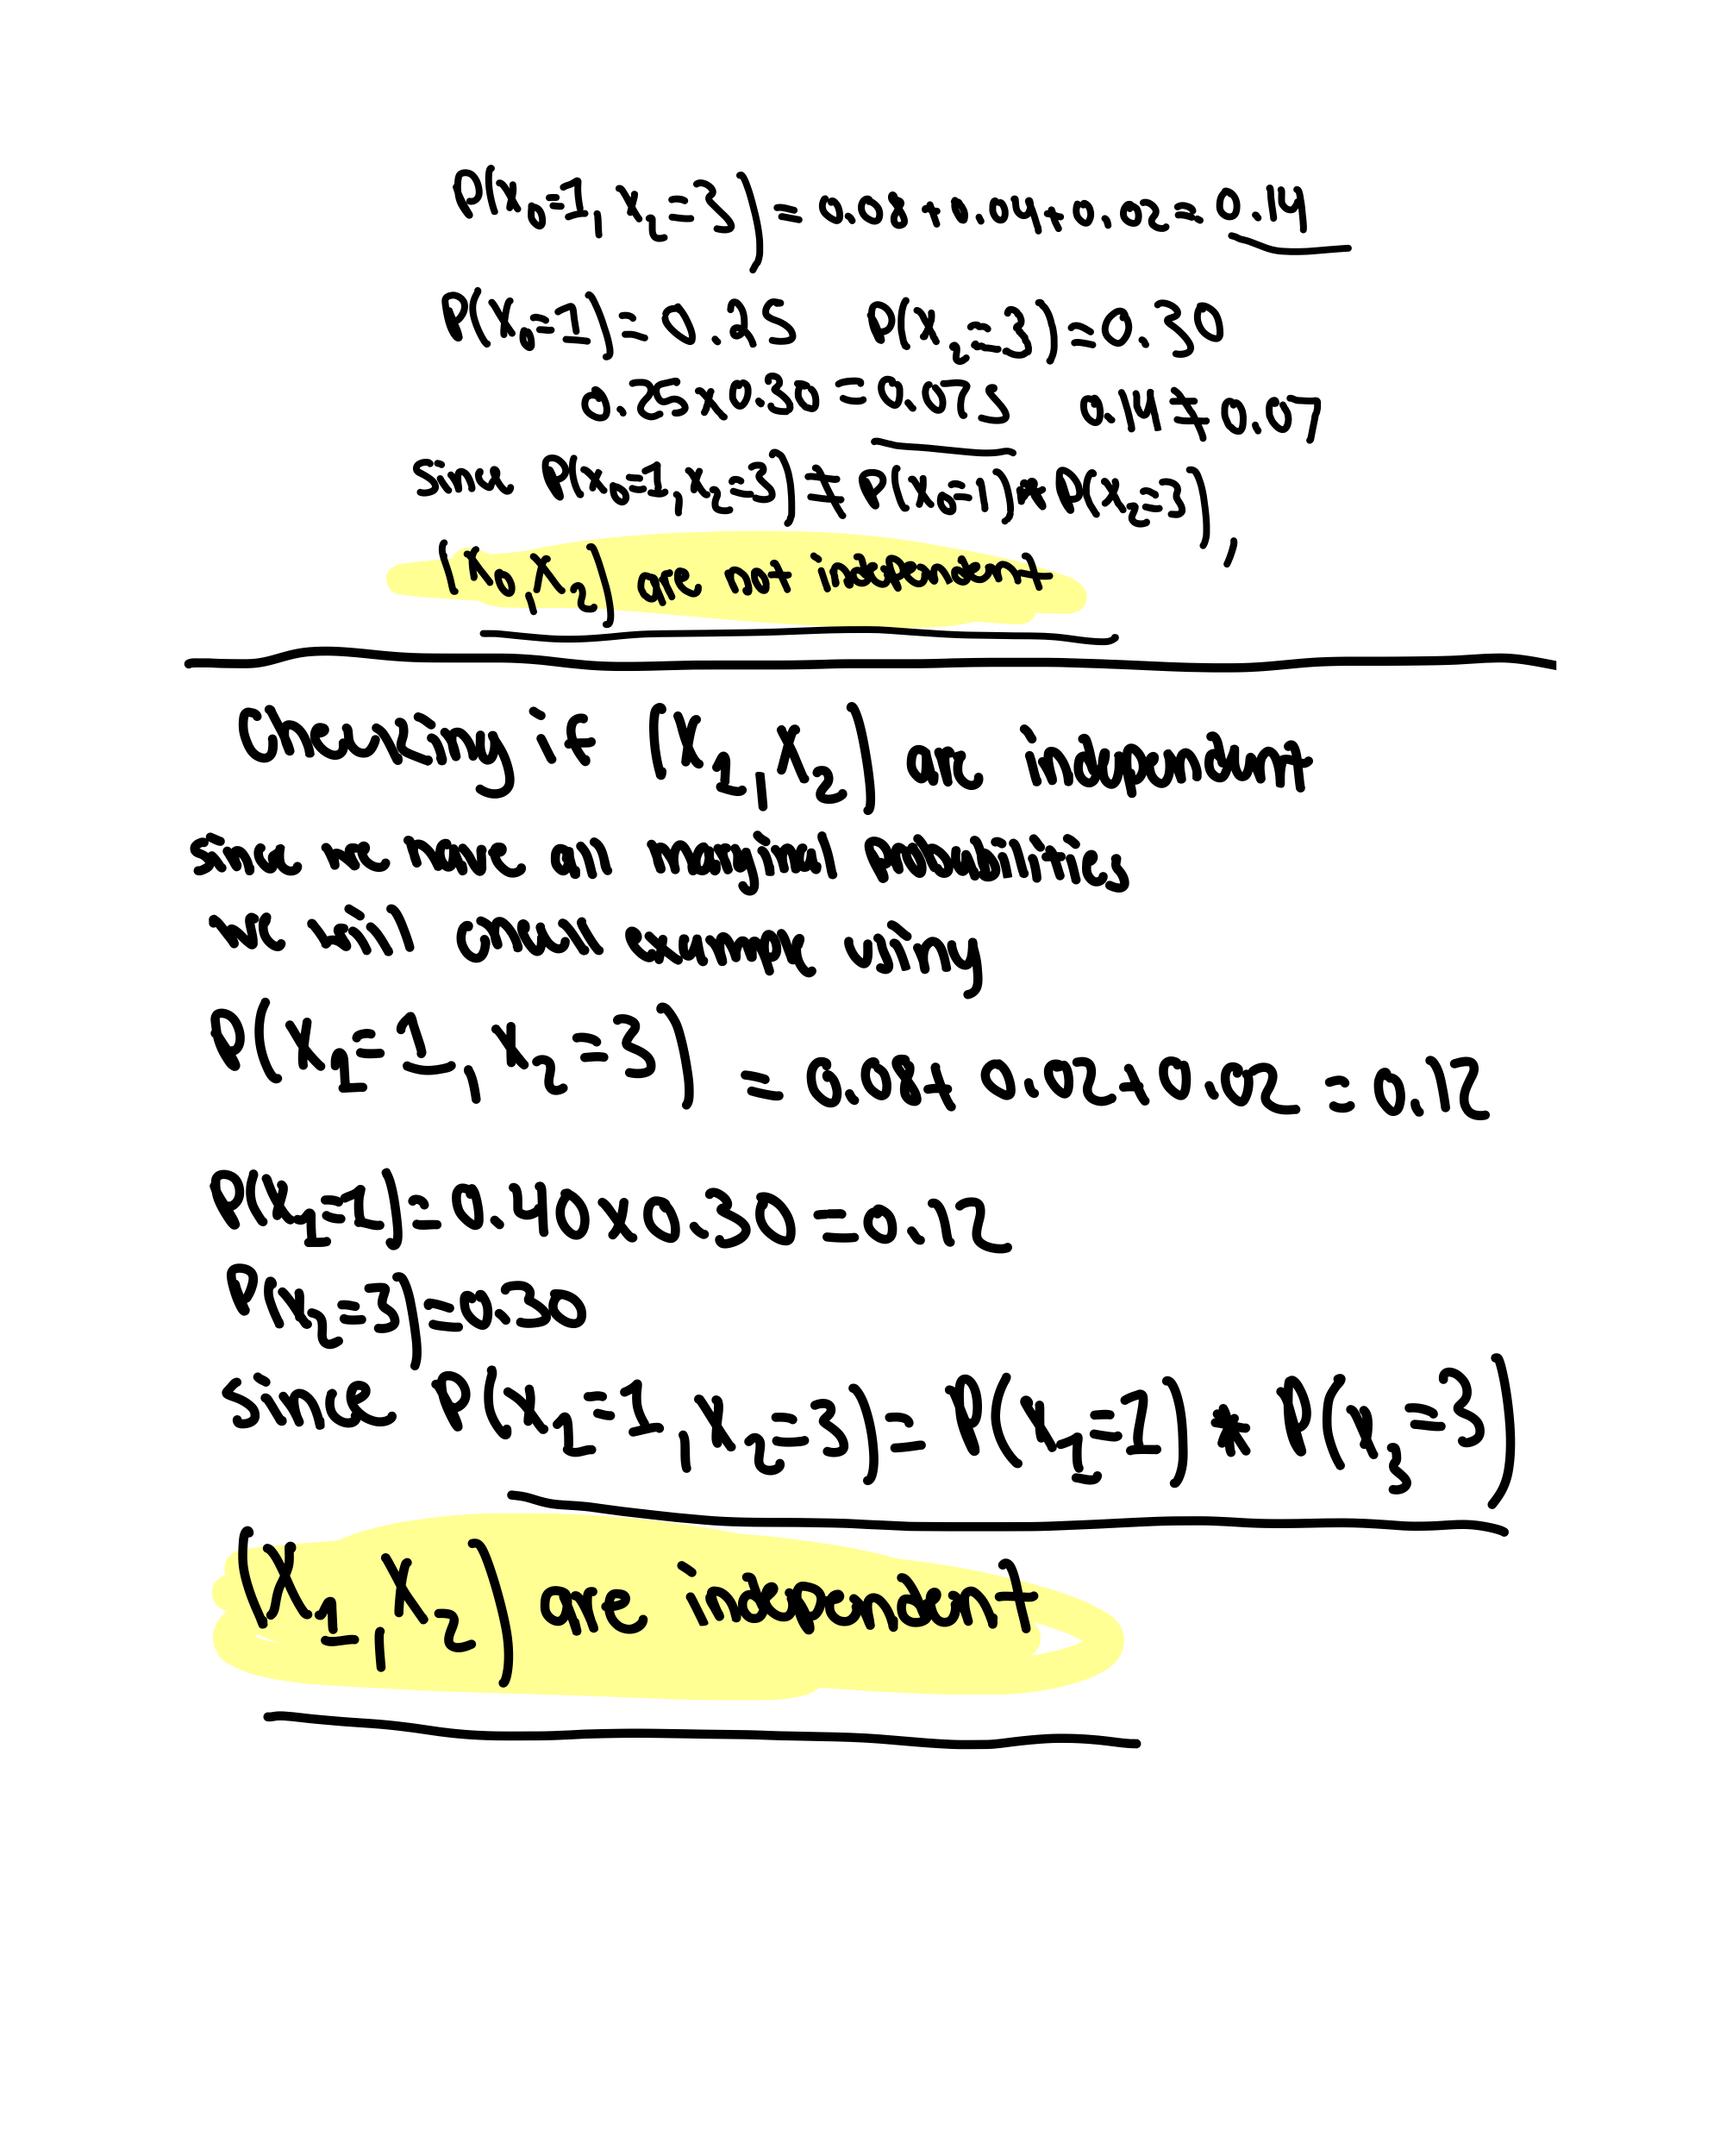 P(X₀=1, X₂=3) = 0.08+0.04+0.02=0.14
P(X₀=1)=0.25 P(X₂=3)=0.30
0.25x0.30=0.075 0.14≠0.07
Since P(X₀=1,X₂=3)≠P(X₀=1)*P(X₂=3),
(X₀,X₂) are not independent
Checking if (X₁,X₂) are independent
since we have all marginal probabilities
we will check example using
P(X₁=1, X₂=3) = 0.08+0.02+0.02=0.12
P(X₁=1)=0.40x0.30=0.12
P(X₂=3)=0.30
Since P(X₁=1,X₂=3)=P(X₁=1)*P(X₃=3)
(X₁,X₂) are independent